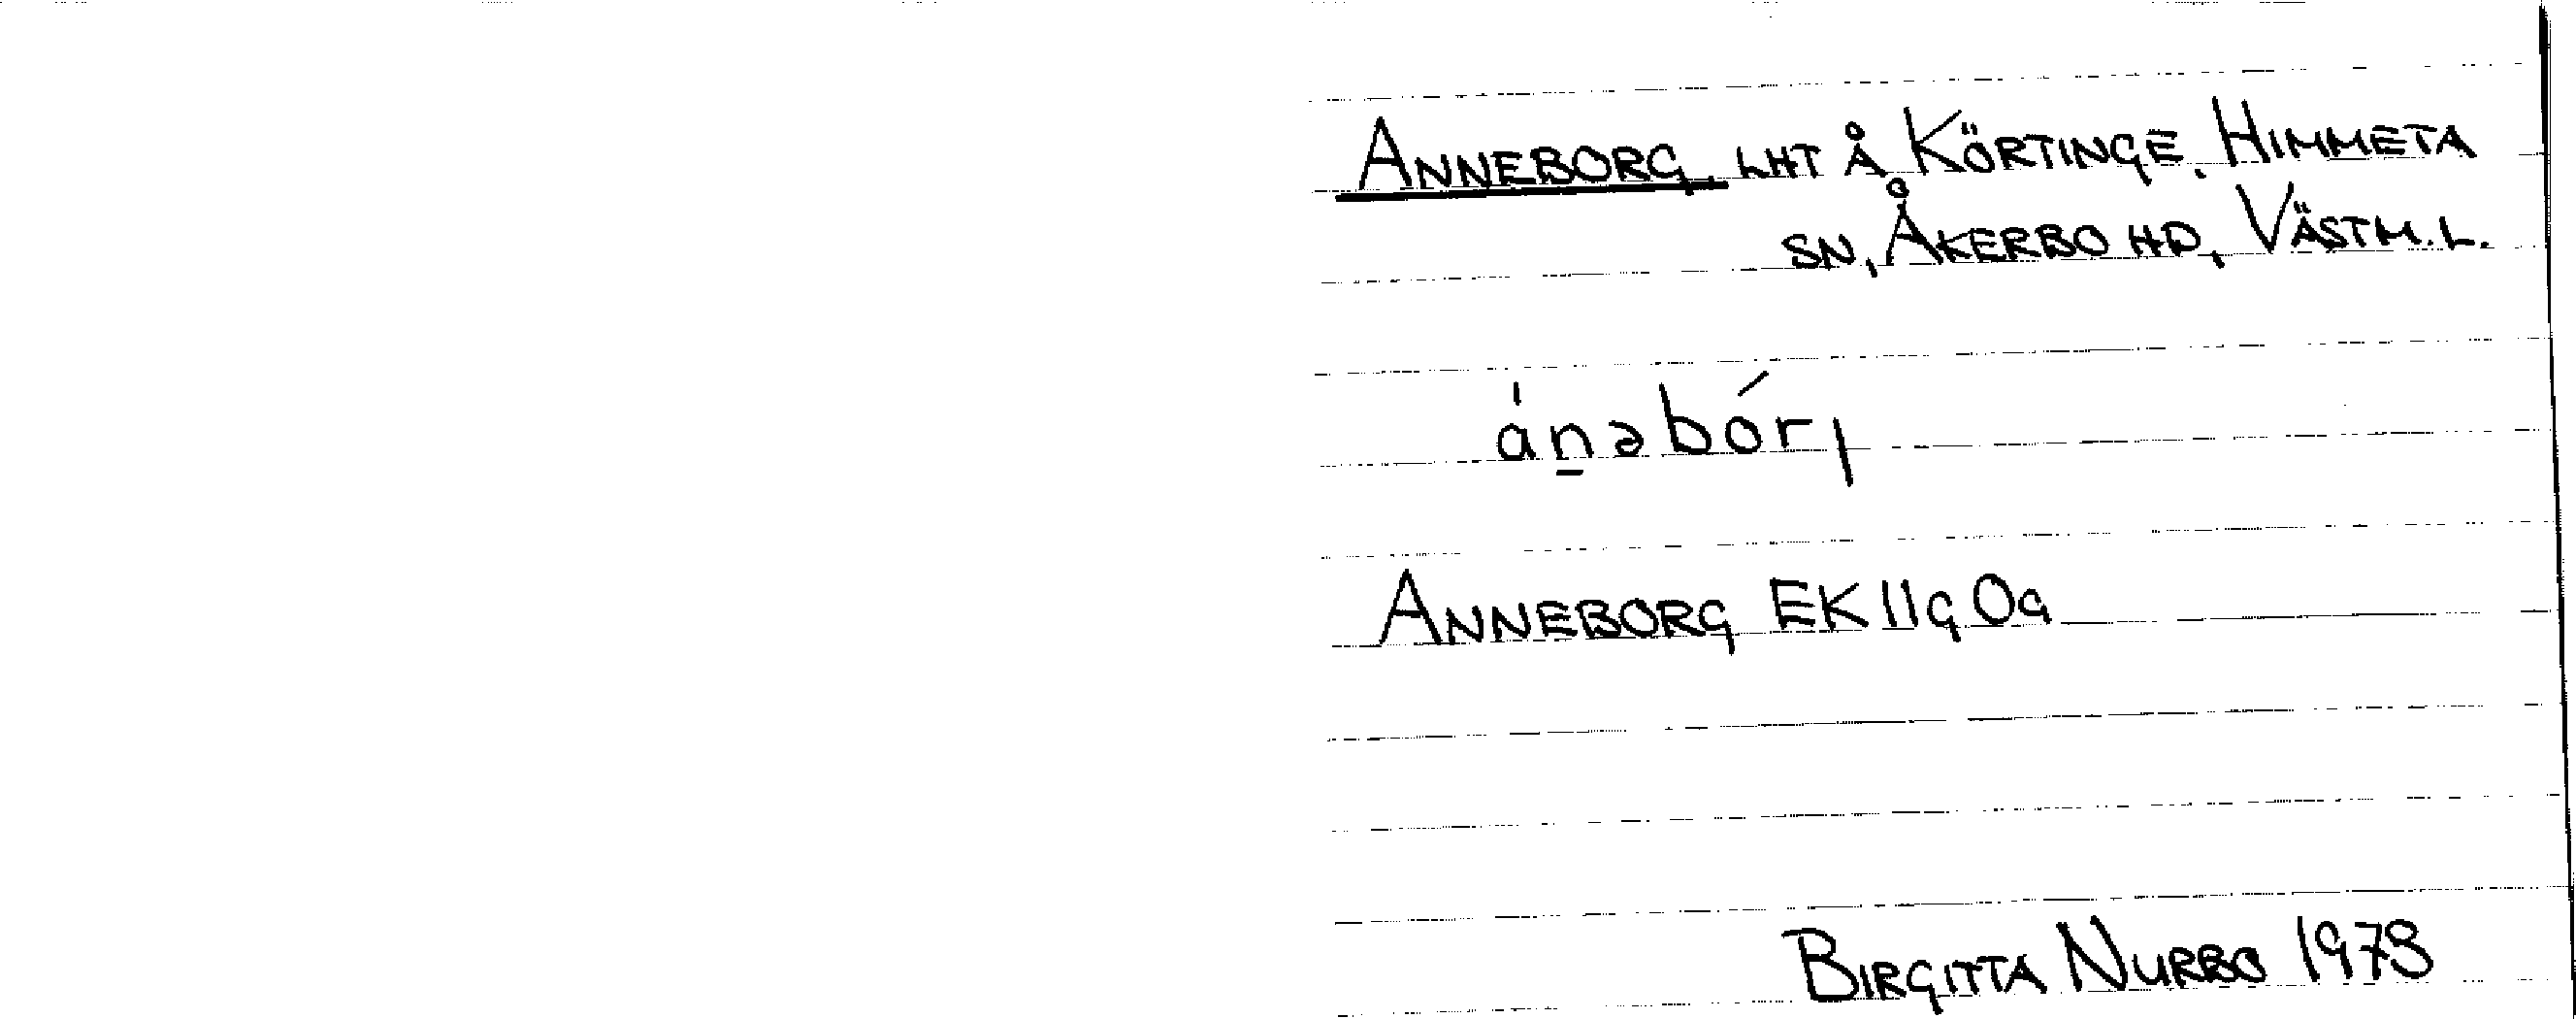 ANNEBORG, LHT Å KÖRTINGE, HIMMETA
SN, ÅKERBO HD, VÄSTM. L.
ánəbórȷ
ANNEBORG EK 11g 0a
BIRGITTA NURBO 1978